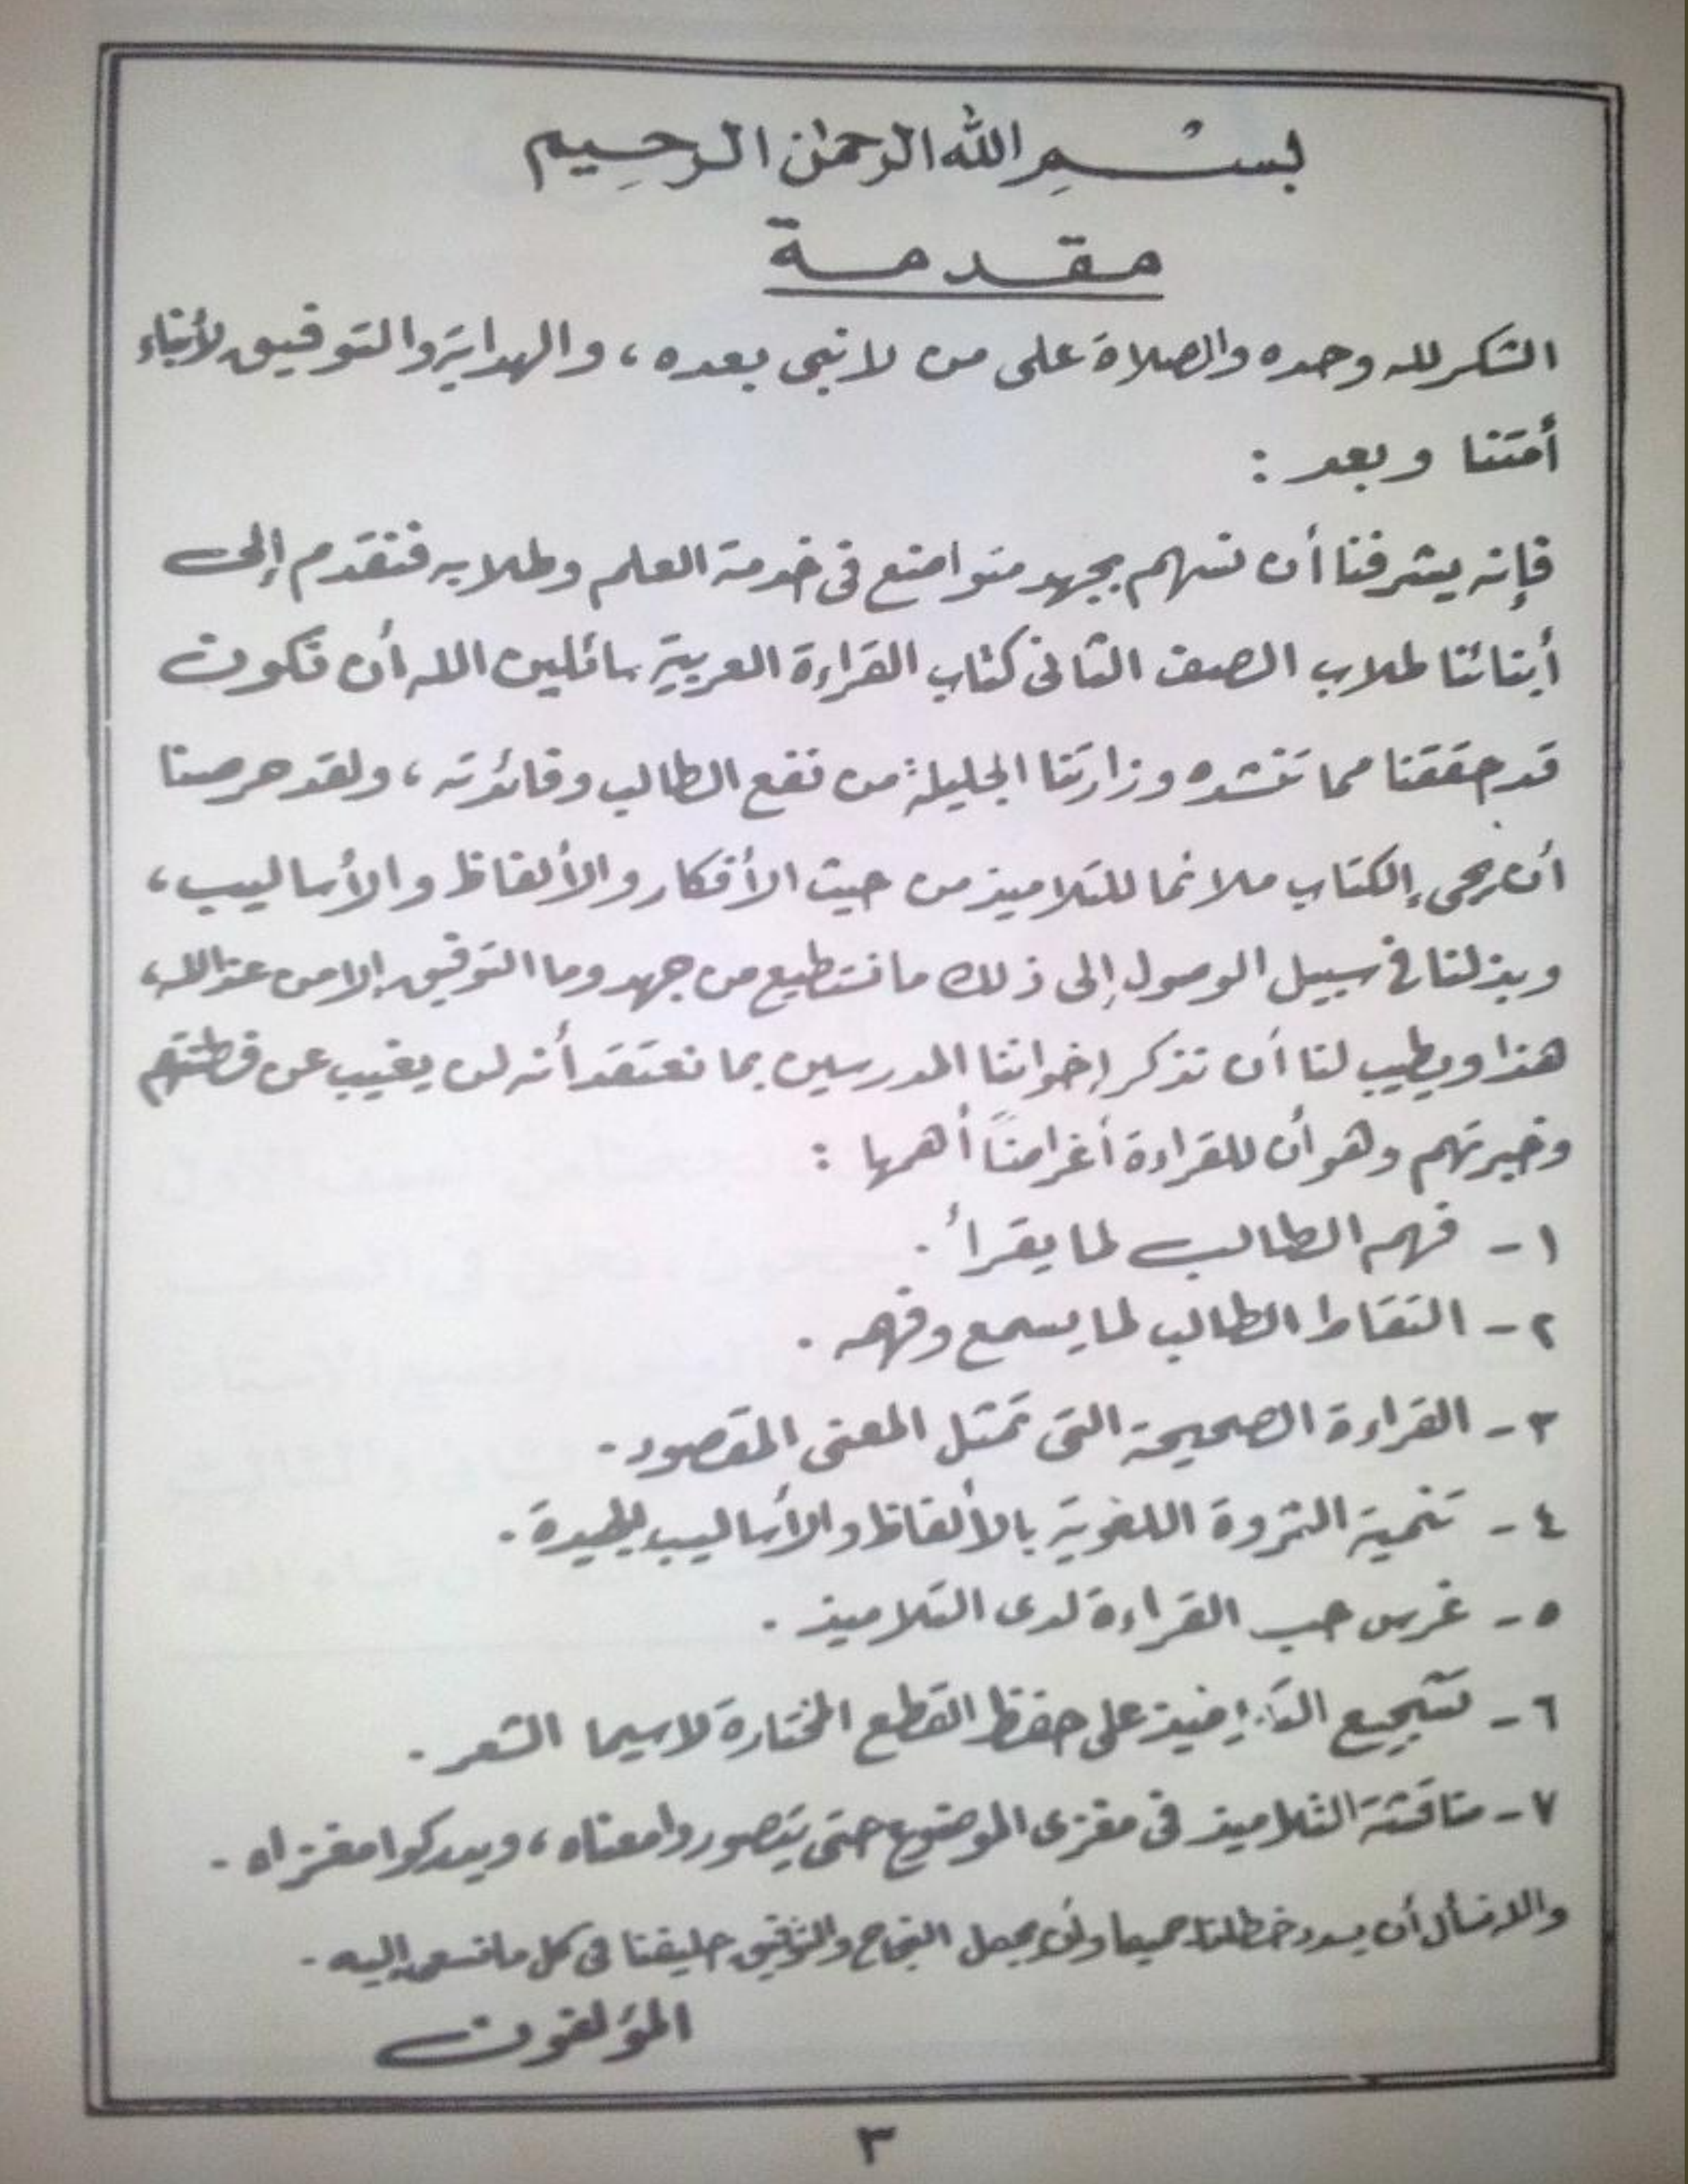 بسم الله الرحمن الرحيم
مقدمة
الشكر لله وحده والصلاة على من لا نبى بعده ، والهداية والتوفيق لأبناء
أمتنا وبعد :
فإنه يشرفنا أن نسهم بجهد متواضع فى خدمة العلم وطلابه فنقدم إلى
أبنائنا طلاب الصف الثانى كتاب القراءة العربية سائلين الله أن نكون
قد حققنا مما تنشده وزارتنا الجليلة من نفع الطالب وفائدته ، ولقد حرصنا
أن يجى الكتاب ملائما للتلاميذ من حيث الأفكار والألفاظ والأساليب ،
وبذلنا فى سبيل الوصول إلى ذلك ما نستطيع من جهد وما التوفيق إلا من عند الله ،
هذا ويطيب لنا أن نذكر إخواننا المدرسين بما نعتقد أنه لن يغيب عن فطنتهم
وخبرتهم وهو أن للقراءة أغراضاً أهمها :
١ - فهم الطالب لما يقرأ .
٢ - التقاط الطالب لما يسمع وفهمه .
٣ - القراءة الصحيحة التى تمثل المعنى المقصود .
٤ - تنمية الثروة اللغوية بالألفاظ والأساليب الجيدة .
٥ - غرس حب القراءة لدى التلاميذ .
٦ - تشجيع التلاميذ على حفظ القطع المختارة لاسيما الشعر .
٧ - مناقشة التلاميذ فى مغزى الموضوع حتى يتصوروا معناه ، ويدركوا مغزاه .
والله نسأل أن يسدد خطانا جميعا وأن يجعل النجاح والتوفيق حليفنا فى كل ما نسعى إليه .
المؤلفون
٣